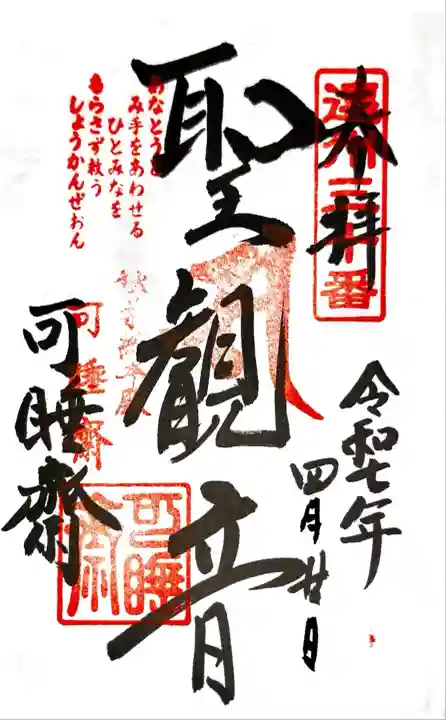 奉拝
令和七年
四月廿日
聖観音
あなとうと
み手をあわせる
ひとみなを
もらさず救う
しょうかんぜおん
可睡齋
可睡齋
可睡
齋